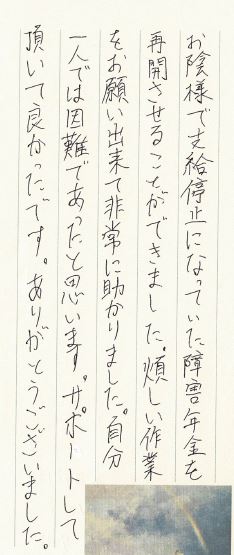 お陰様で支給停止になっていた障害年金を
再開させることができました。煩しい作業
をお願い出来て非常に助かりました。自分
一人では困難であったと思います。サポートして
頂いて良かったです。ありがとうございました。